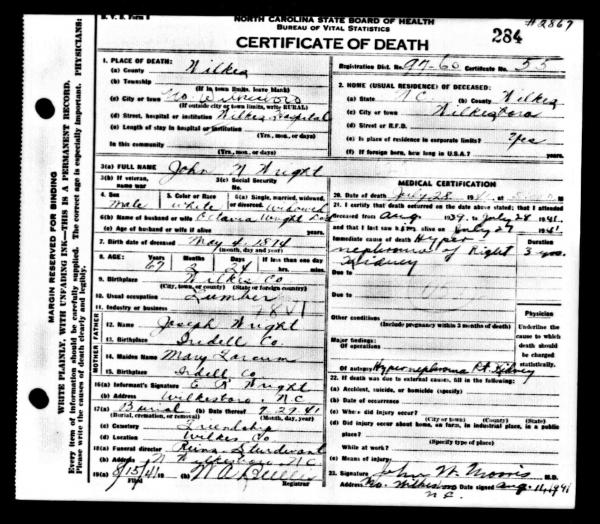 N. V. D. Form 8
NORTH CAROLINA STATE BOARD OF HEALTH
BUREAU OF VITAL STATISTICS
#2867
284
CERTIFICATE OF DEATH
Registration Dist. No. 97-60 Certificate No. 55
1. PLACE OF DEATH:
(a) County Wilkes
(b) Township
(If in town limits, leave blank)
(c) City or town No. Wilkesboro
(If outside city or town limits, write RURAL)
(d) Street, hospital or institution Wilkes Hospital
(e) Length of stay in hospital or institution
(Yrs., mos., or days)
In this community
(Yrs., mos., or days)
2. HOME (USUAL RESIDENCE) OF DECEASED:
(a) State NC (b) County Wilkes
(c) City or town Wilkesboro
(d) Street or R.F.D.
(e) Is place of residence in corporate limits? Yes
(f) If foreign born, how long in U.S.A.?
3(a) FULL NAME John Wright
3(b) If veteran, name war
3(c) Social Security No.
4. Sex Male
5. Color or Race White
6(a) Single, married, widowed, or divorced Widowed
6(b) Name of husband or wife Octavia Wright
6(c) Age of husband or wife if alive years
7. Birth date of deceased May 4, 1874
(month, day, and year)
8. AGE: Years 67 Months 2 Days 24 If less than one day hrs. min.
9. Birthplace Wilkes Co
(City, town, or county) (State or foreign country)
10. Usual occupation Lumber
11. Industry or business
FATHER
12. Name Joseph Wright
13. Birthplace Iredell Co
MOTHER
14. Maiden Name Mary
15. Birthplace Iredell Co
16(a) Informant's Signature Wright
(b) Address Wilkesboro, NC
17(a) Burial (b) Date thereof 7-29-41
(Burial, cremation, or removal) (Month, day, year)
(c) Cemetery Friendship
(d) Location Wilkes Co
18(a) Funeral director Reins Sturdivant
(b) Address N. Wilkesboro, NC
19(a) 8/15/41 (b)
Filed Registrar
MEDICAL CERTIFICATION
20. Date of death July 28
21. I certify that death occurred on the date above stated; that I attended
deceased from Aug 1939, to July 28 1941
and that I last saw h alive on July 27 1941
Immediate cause of death Hyper
nephroma of Right
Kidney
Duration
3 yrs.
Due to
Due to
Other conditions
(Include pregnancy within 3 months of death)
Major findings:
Of operation
Of autopsy Hypernephroma Rt. Kidney
Physician
Underline the cause to which death should be charged statistically.
22. If death was due to external causes, fill in the following:
(a) Accident, suicide, or homicide (specify)
(b) Date of occurrence
(c) Where did injury occur?
(City or town) (County) (State)
(d) Did injury occur about home, on farm, in industrial place, in a public place?
(Specify type of place)
While at work?
(e) Means of injury
23. Signature John W. Morris M.D.
Address No. Wilkesboro Date signed Aug. 11, 1941
N.C.
MARGIN RESERVED FOR BINDING
WRITE PLAINLY, WITH UNFADING INK—THIS IS A PERMANENT RECORD.
Every item of information should be carefully supplied. The correct age is especially important. PHYSICIANS:
Please write the causes of death clearly and legibly.